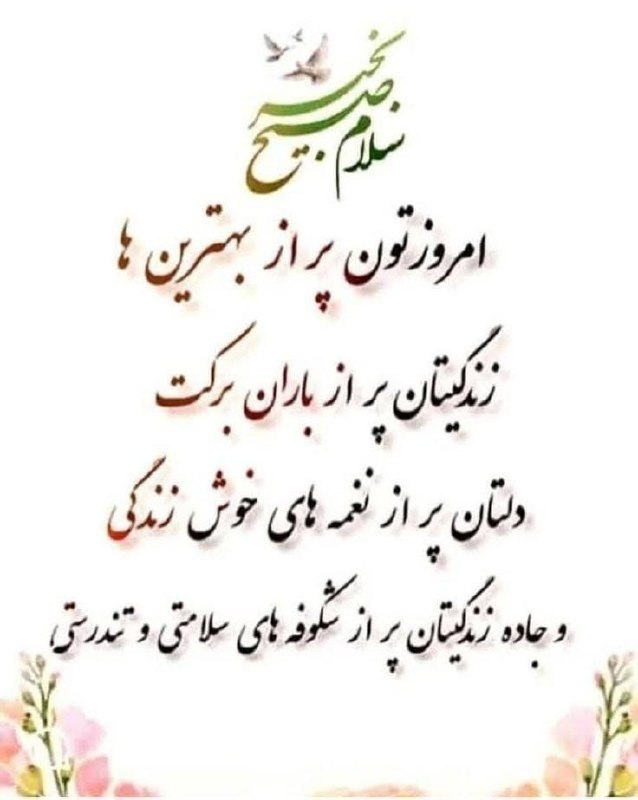 سلام صبح بخیر
امروزتون پر از بهترین ها
زندگیتان پر از باران برکت
دلتان پر از نغمه های خوش زندگی
و جاده زندگیتان پر از شکوفه های سلامتی و تندرستی